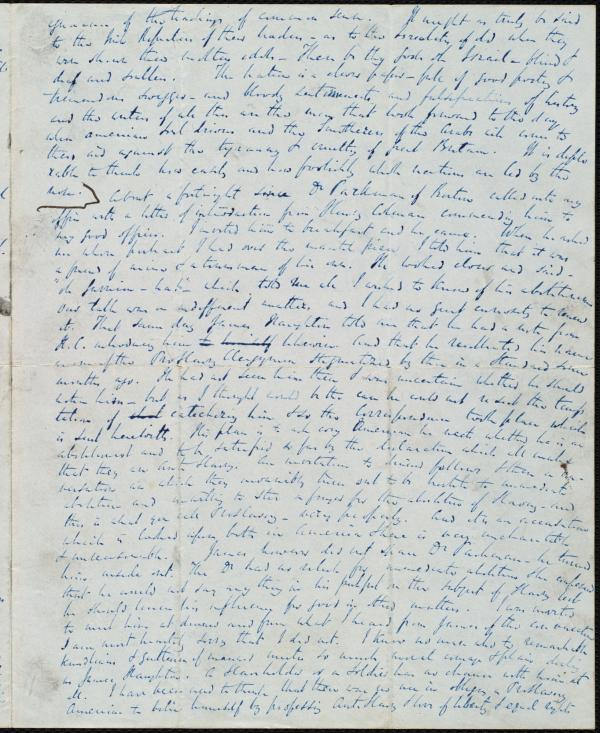 of the teachings of common sense. It might as truly be said
to the Irish Repealers of their leaders - as to the of old when they
- These be thy gods Oh Israel - blind &
deaf and sullen. The Nation is a clever paper - full of good poetry &
tremendous swagger - and bloody sentiments, and falsification of history
and the writers of it are the men that look forward to the day
when American Slave drivers and the of the Arabs will unite to
them aid against the tyranny & cruelty of Great Britain. It is deplo
rable to think how easily and how foolishly whole nations are led by the
nose.
About a fortnight since Dr Parkman of Boston called into my
office with a letter of introduction from Henry Chapman commending him to
my good offices. I invited him to breakfast and he came. When he asked
me whose portrait I had over the mantle piece I told him that it was
a friend of mine & a townsman of his own. He looked close and said -
"Oh Garrison - which told me all I wished to know of his abolitionism
Our talk was on indifferent matters and I had no great curiosity to
it. That same day James Haughton told me that he had a note from
H.C. introducing him likewise and that he recollected his name
as one of the Pro Slavery Clergymen stigmatized by them in a Standard some
months ago. He had not seen him then & was uncertain whether he should
see him - but as I thought he could not resist the temp
tation of catechizing him & so the Correspondence took place which
is sent herewith. His plan is to ask every American he meets whether he is an
abolitionist and to be satisfied so far by the declaration which all make
that they are Anti Slavery. An invitation to follows & then a con
versation in which they invariably turn out to be hostile to immediate
abolition and to for the abolitions of Slavery - and
this is what you call ProSlavery - very properly. And it is an accusation
which is looked upon both in America & here as very uncharitable
& unreasonable. James however did not spare Dr Parkman - he turned
him inside out. The Dr had no relish for immediate abolition & he confessed
that he would not say any thing in his pulpit on the subject of Slavery lest
he should lessen his influence for good in other matters. I was invited
to meet him at dinner and from what I heard from James of the conversation
I am most heartily sorry that I did not. I know no one who so remarkably
kindliness & gentleness of manner unites so much moral courage & plain dealing
as James Haughton. A Slaveholder or a Soldier has no chance with him at
all. I have been used to think that there was no one in a ProSlavery
American to bolster himself by professing Anti Slavery & love of liberty & equal rights